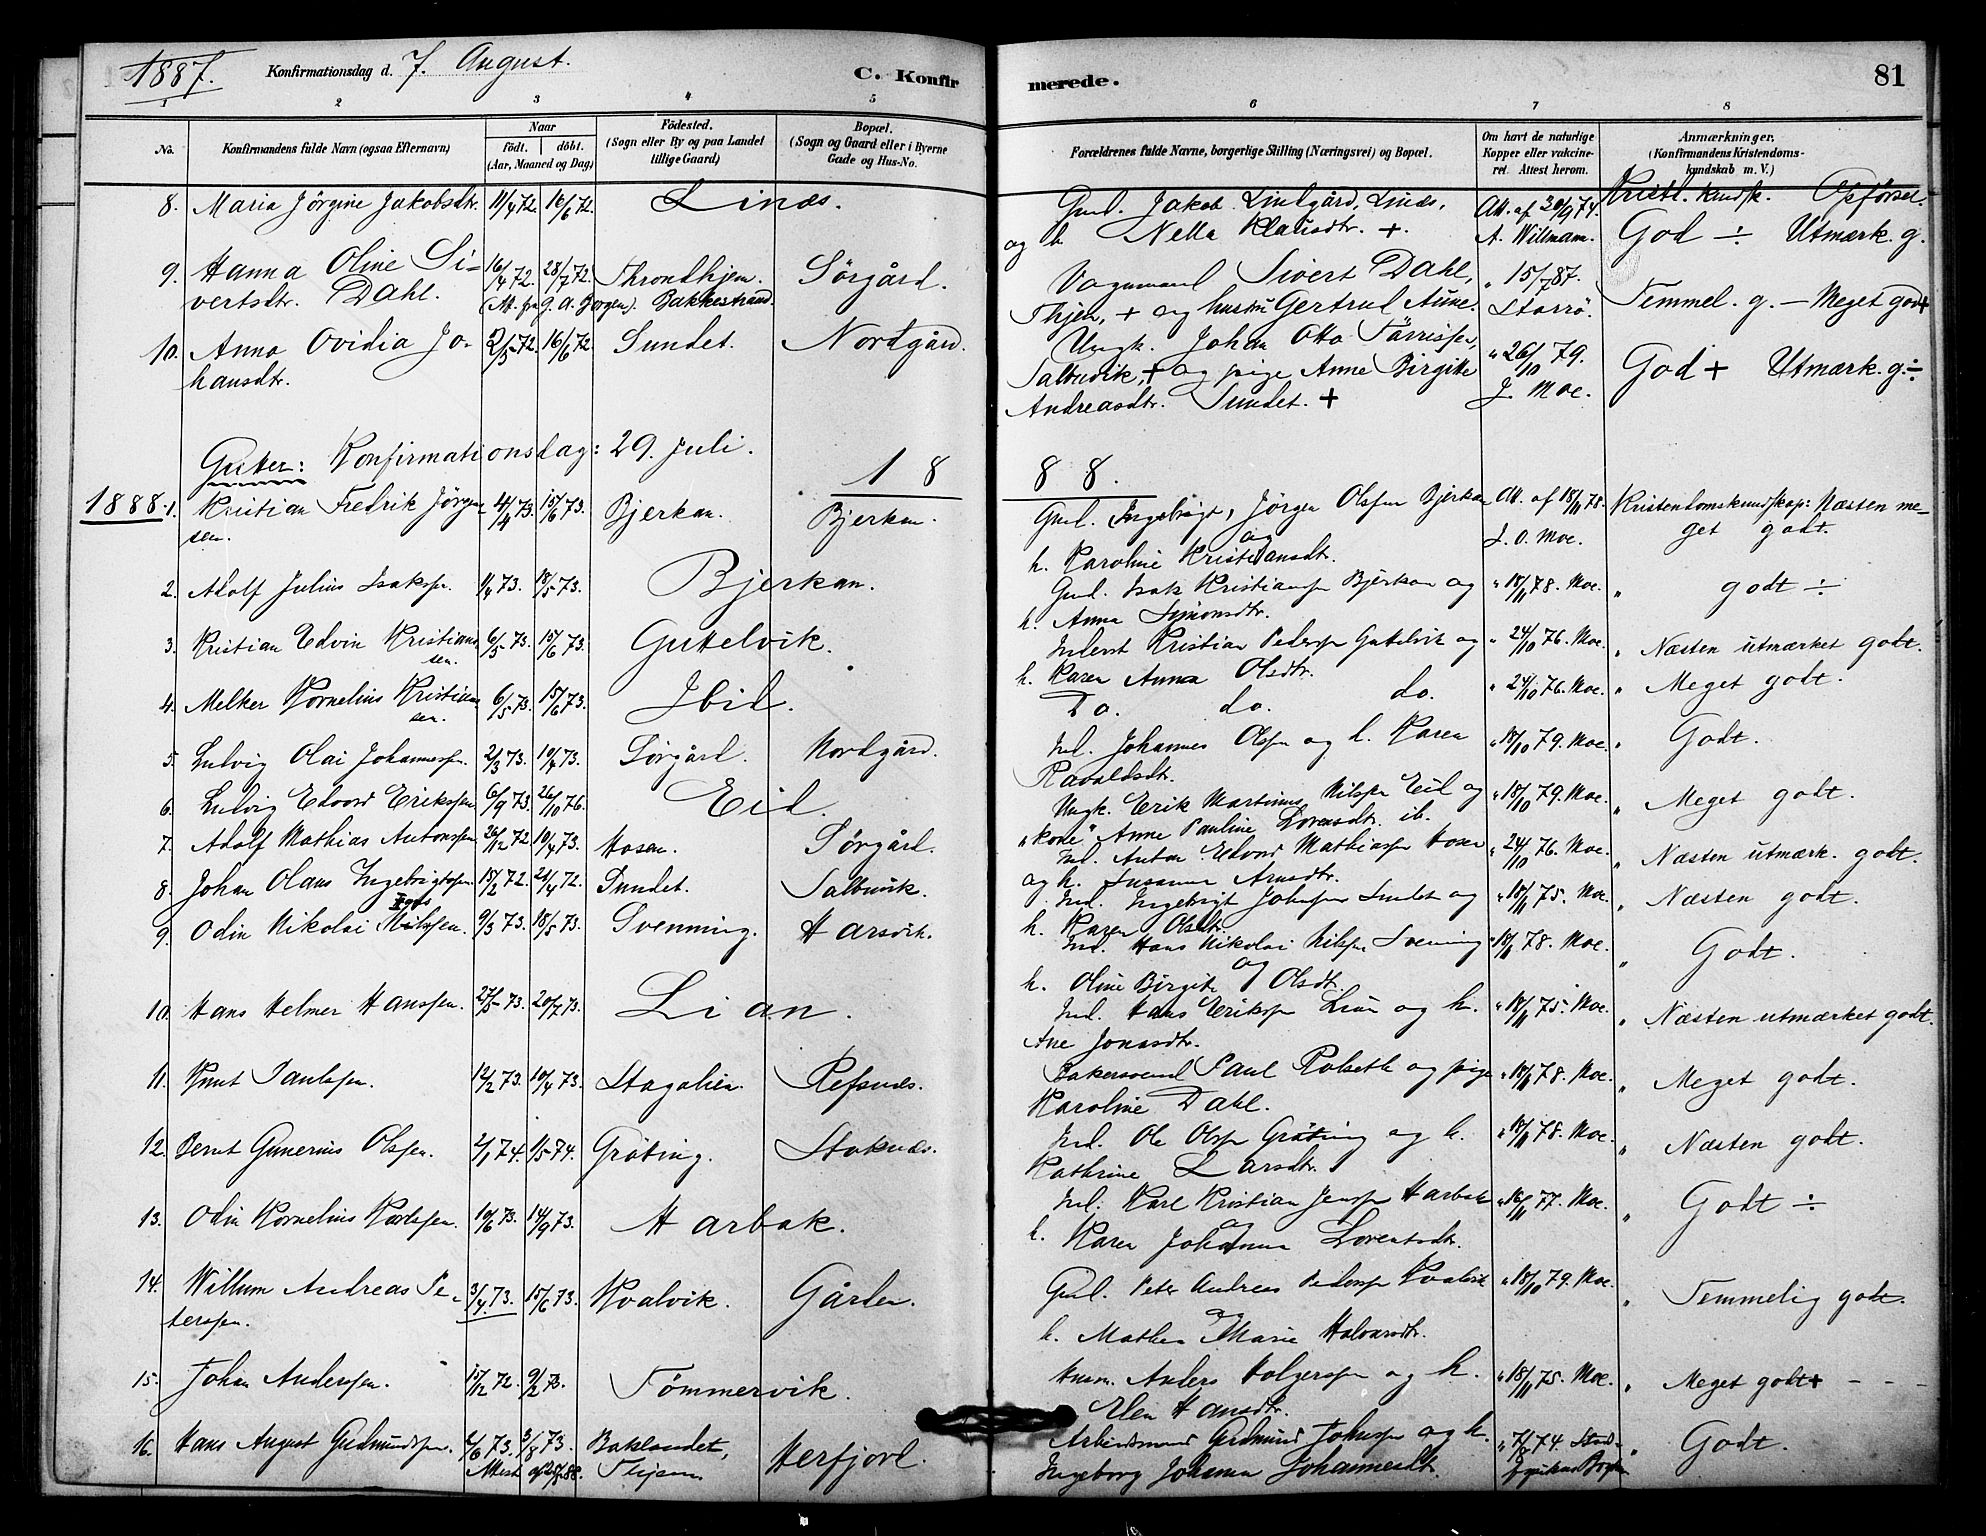 1887. Konfirmationsdag d. 7. August. C. Konfir merede. 81
1 2 3 4 5 6 7 8
No. Konfirmandens fulde Navn (ogsaa Efternavn) Naar født. døbt. (Aar, Maaned og Dag) Fødested. (Sogn eller By og paa Landet tillige Gaard) Bopæl. (Sogn og Gaard eller i Byerne Gade og Hus-No. Forældrenes fulde Navne, borgerlige Stilling (Næringsvei) og Bopæl. Om havt de naturlige Kopper eller vakcineret. Attest herom. Anmærkninger. (Konfirmandens Kristendomskundskab m. V.)
Kristl. kundsk. Opførsel.
8. Maria Jörgine Jakobsdtr. 11/4 72. 16/6 72. Linæs. Gmd. Jakob Lindgård, Linæs, Att. af 30/9 74.
og h. Nella Klausdtr. +. A. Willmann. God ÷ Utmærk. g.
9. Hanna Oline Si- 16/4 72. 28/7 72. Throndhjem. Sörgård. Vognmand Sivert Dahl, " 15/7 87.
vertsdtr. Dahl. Bakkestrand. Thjem, + og hustru Gertrud Aune. Storrö. Temmel. g. — Meget godt
10. Anna Ovidia Jo- 2/5 72. 16/6 72. Sundet. Nordgård. Ungk. Johan Otto Tärrissen, " 26/10 79.
hansdtr. Salbuvik, + og pige Anne Birgitte J. Moe. God + Utmærk. g. ÷
Andreasdtr. Sundet. +
Gutter: Konfirmationsdag: 29. Juli. 1888.
1888. 1. Kristian Fredrik Jörgen- 4/4 73. 15/6 73. Bjerkan. Bjerkan. Gmd. Jörgen Olssen Bjerkan Att. af 18/11 78. Kristendomskundskap: Næsten me-
sen. og h. Karoline Kristiansdtr. J. O. Moe. get godt.
2. Adolf Julius Isakssen. 1/4 73. 18/5 73. Bjerkan. Gmd. Isak Kristiansen Bjerkan og " 18/11 78. Moe. " godt ÷
h. Anna Symonsdtr.
3. Kristian Edvin Kristian- 6/5 73. 15/6 73. Guttelvik. Kristian Pederssen Guttelvik og " 24/10 76. Moe. " Næsten utmærket godt.
sen. h. Karen Anna Olsdtr.
4. Melker Kornelius Kristian- 6/5 73. 15/6 73. Ibid. Do. do. do. " 24/10 76. Moe. " Meget godt.
sen.
5. Ludvig Olai Johannessen. 2/3 73. 10/4 73. Sörgård. Nordgård. Ind. Johannes Olssen og h. Karen " 18/10 79. Moe. " Godt.
6. Ludvig Edvard Erikssen 6/9 73. 26/10 76. Eid. Ungk. Erik Martinus Nilssen Eid og " 18/10 79. Moe. " Meget godt.
"kone" Anne Pauline Lorensdtr. ib.
7. Adolf Mathias Antonssen 26/12 72. 10/4 73. Hosen. Sörgård. Ind. Anton Edvard Mathiassen Hosen " 24/10 76. Moe. " Næsten utmærk. godt.
og h. Susanna Arnsdtr.
8. Johan Olaus Ingebrigtssen. 18/2 72. 21/4 72. Sundet. Salbuvik. Ind. Ingebrigt Johnssen Sundet og " 18/11 75. Moe. " Næsten godt.
h. Karen Olsdtr.
9. Odin Nikolai 9/3 73. 18/5 73. Svenning. Harsvik. Ind. Hans Nikolai Nilssen Svenning " 18/11 78. Moe. " Godt.
og h. Oline Birgite Olsdtr.
10. Hans Helmer Hanssen. 27/5 73. 20/7 73. Lian. Ind. Hans Erikssen Lian og h. " 18/11 75. Moe. " Næsten utmærket godt.
Ane Jonasdtr.
11. Knut Paulssen. 12/2 73. 10/4 73. Refsnæs. Bakersvend Paul Rolseth og pige " 18/11 78. Moe. " Meget godt.
Karoline Dahl.
12. Bernt Gunerius Olssen. 2/1 74. 1/5 74. Gröting. Stoknæs. Ind. Ole Olssen Gröting og h. " 18/11 78. Moe. " Næsten godt.
Kathrine Larsdtr.
13. Odin Kornelius Karlssen. 10/6 73. 14/9 73. Harbak. Ind. Karl Kristian Jenssen Harbak " 16/11 77. Moe. " Godt ÷
og h. Karen Johanna Lorentsdtr.
14. Willum Andreas Pe- 3/4 73. 15/6 73. Kvalvik. Gården. Gmd. Peter Andreas Pederssen Kvalvik " 18/10 79. Moe. " Temmelig godt.
terssen. og h. Mathea Marie Halvarsdtr.
15. Johan Anderssen. 15/12 72. 9/2 73. Tömmervik. Husm. Anders Holgerssen og h. " 18/11 75. Moe. " Meget godt+ - - -
Elen Hansdtr.
16. Hans August Gudmundssen. 2/6 73. 3/8 73. Baklandet, Herfjord. Arbeidsmand Gudmund Johnssen og h. " 7/2 74. " Godt.
Attest af Thjem Ingeborg Johanna Johannesdtr.